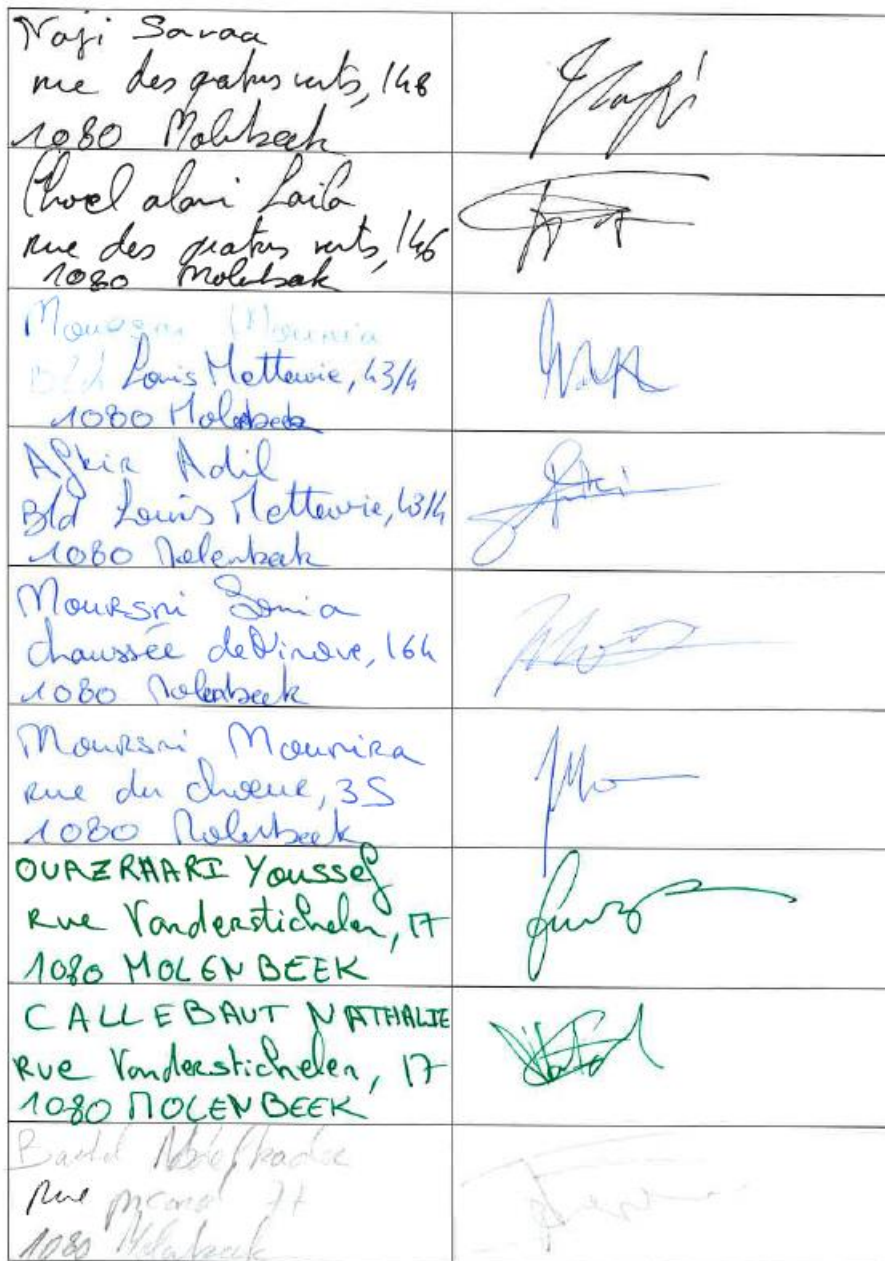 Naji Savaa
rue des quatres vents, 148
1080 Molenbeek
alami Laila
rue des quatres vents, 146
1080 Molenbeek
Mounia
Bld Louis Mettewie, 43/4
1080 Molenbeek
Afkir Adil
Bld Louis Mettewie, 43/4
1080 Molenbeek
MouRsni Sonia
chaussée de Ninove, 164
1080 Molenbeek
MouRsni MouniRa
rue du choeur, 35
1080 Molenbeek
OUAZRHARI Youssef
Rue Vanderstichelen, 17
1080 MOLENBEEK
CALLEBAUT NATHALIE
Rue Vanderstichelen, 17
1080 MOLENBEEK
Rue picard 77
1080 Molenbeek